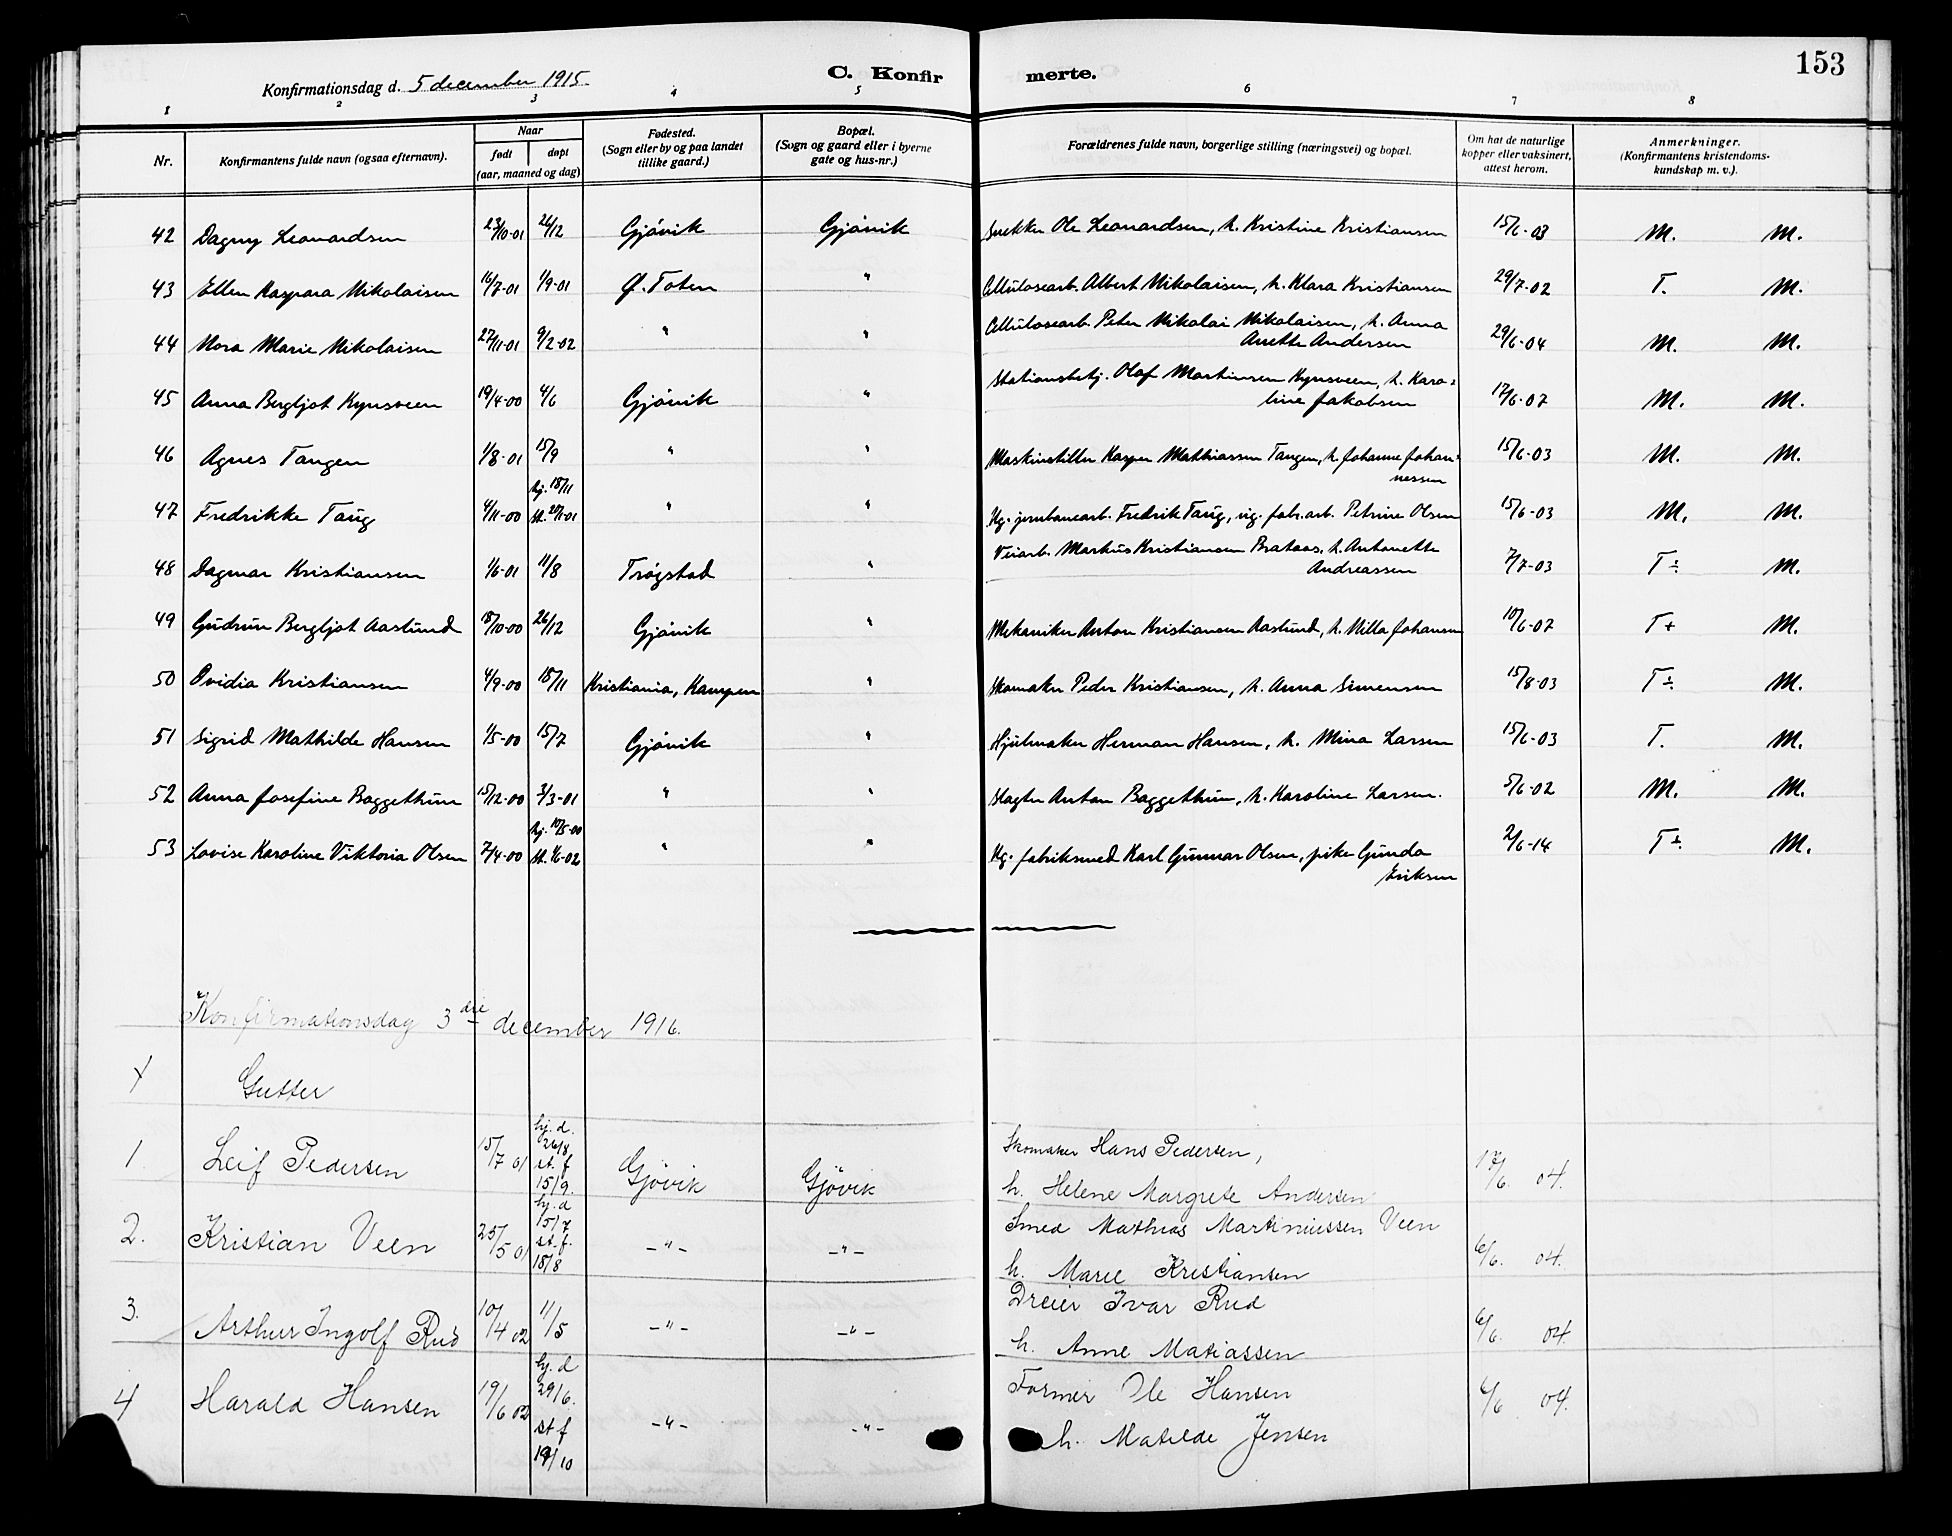 153
Konfirmationsdag d. 5 december 1915.
C. Konfir merte.
1 2 3 4 5 6 7 8
Nr.
Konfirmantens fulde navn (ogsaa efternavn).
Naar
født
døpt
(aar, maaned og dag)
Fødested.
(Sogn eller by og paa landet
tillike gaard.)
Bopæl.
(Sogn og gaard eller i byerne
gate og hus-nr.)
Forældrenes fulde navn, borgerlige stilling (næringsvei) og bopæl.
Om hat de naturlige
kopper eller vaksinert,
attest herom.
Anmerkninger.
(Konfirmantens kristendoms-
kundskap m. v.).
42 Dagny Leonardsen 23/10-01 26/12 Gjøvik Gjøvik Snekker Ole Leonardsen, h. Kristine Kristiansen 15/6-03 M. M.
43 Ellen Kaspara Mikolaisen 16/7-01 1/9-01 Ø. Toten " Cellulosearb. Albert Mikolaisen, h. Klara Kristiansen 29/7-02 T. M.
44 Nora Marie Mikolaisen 27/11-01 9/2-02 " " Cellulosearb. Peter Mikolai Mikolaisen, h. Anna
Anette Andersen 29/6-04 M. M.
45 Anna Bergljot Kynsveen 19/4-00 4/6 Gjøvik " Stationsbetj. Olaf Martinsen Kynsveen, h. Karo-
line Jakobsen 17/6-07 M. M.
46 Agnes Tangen 1/8-01 15/9 " " Maskinstiller Kasper Mathiassen Tangen, h. Johanne Johan-
nessen 15/6-03 M. M.
47 Fredrikke Taug 4/11-00 hj. 18/11
st. 20/1-01 " " Ug. jernbanearb. Fredrik Taug, ug. fabr.arb. Petrine Olsen 15/6-03 M. M.
48 Dagmar Kristiansen 1/6-01 11/8 Trøgstad " Veiarb. Markus Kristiansen Brataas, h. Antonette
Andreassen 7/7-03 T÷ M.
49 Gudrun Bergljot Aaslund 18/10-00 26/12 Gjøvik " Mekaniker Anton Kristiansen Aaslund, h. Milla Johansen 10/6-07 T+ M.
50 Ovidia Kristiansen 4/9-00 18/11 Kristiania, Kampen " Skomaker Peder Kristiansen, h. Anna Simensen 15/8-03 T÷ M.
51 Sigrid Mathilde Hansen 1/5-00 15/7 Gjøvik " Hjulmaker Herman Hansen, h. Mina Larsen 15/6-03 T. M.
52 Anna Josefine Baggethun 15/12-00 3/3-01 " " Slagter Anton Baggethun, h. Karoline Larsen. 5/6-02 M. M.
53 Lovise Karoline Viktoria Olsen 7/4-00 hj. 10/5-00
st. 1/6-02 " " Ug. fabriksmed Karl Gunnar Olsen, pike Gunda
Eriksen 2/6-14 T÷ M.
Konfirmationsdag 3die december 1916.
Gutter
1. Leif Pedersen 15/7 01 hj. d. 26/8 st. f 15/9. Gjøvik Gjøvik Skomaker Hans Pedersen,
h. Helene Margrete Andersen 17/6. 04.
2. Kristian Veen 25/5 01 hj. d 15/7 st. f. 18/8 -"- -"- Smed Mathias Martiniussen Veen
h. Marie Kristiansen 6/6. 04.
3. Arthur Ingolf Rud 10/4 02 11/5 -"- -"- Dreier Ivar Rud
h. Anne Matiassen 6/6. 04.
4 Harald Hansen 19/6 02 hj. d 29/6. st f 19/10 -"- -"- Former Ole Hansen
h. Matilde Jensen 6/6 04.